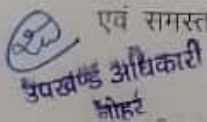 एवं समस्त
उपखण्ड अधिकारी
नोहर